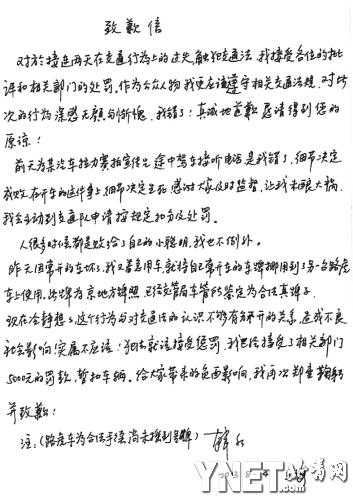 致歉信
对於接连两天在交通行为上的过失，触犯交通法，我接受各位的批
评和相关部门的处罚。作为公众人物我更应该遵守相关交通法规，对此
次的行为深感无颜与惭愧，我错了！真诚地道歉 恳请得到您的
原谅！
前天为某汽车拉力赛拍宣传片途中驾车接听电话是我错了，细节决定
成败，在开车的这件事上细节决定生死 感谢大家及时监督，让我未酿大祸，
我会主动到交通队申请按规定扣分及处罚。
人很多时候都是败给了自己的小聪明，我也不例外。
昨天因常开的车坏了，我又着急用车，就将自己常开车的车牌挪用到了另一台路虎
车上使用，此牌为京地方牌照，已经交管局车管所鉴定为合法真牌子。
现在冷静想想，这个行为与对交通法的认识不够有分不开的关系，造成不良
社会影响，实属不应该！犯法就该接受惩罚，我已经接受了相关部门
5000元的罚款，暂扣车辆。给大家带来的负面影响，我再次郑重鞠躬
并致歉！
注：（路虎车为合法手续尚未挂到号牌）
YNET.com 北青网